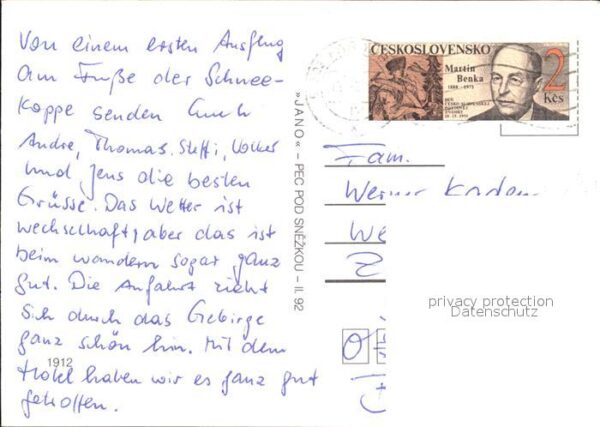 Von einem ersten Ausflug
am Fuße der Schnee-
koppe senden Euch
Andre, Thomas, Steffi, Volker
und Jens die besten
Grüsse. Das Wetter ist
wechselhaft, aber das ist
beim wandern sogar ganz
gut. Die Anfahrt zieht
sich durch das Gebirge
ganz schön hin. Mit dem
Hotel haben wir es ganz gut
getroffen.
1912
» JANO « – PEC POD SNĚŽKOU – II. 92
ČESKOSLOVENSKO
Martin
Benka
1888 - 1971
2
Kčs
Fam.
Werner
We
privacy protection
Datenschutz